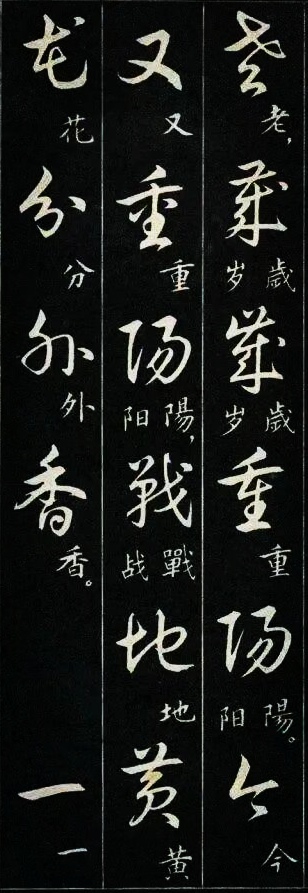 老歲歲重陽今
老，歲岁歲岁重陽阳。今
又重陽戰地黄
又重陽阳，戰战地黄
花分外香一
花分外香。一